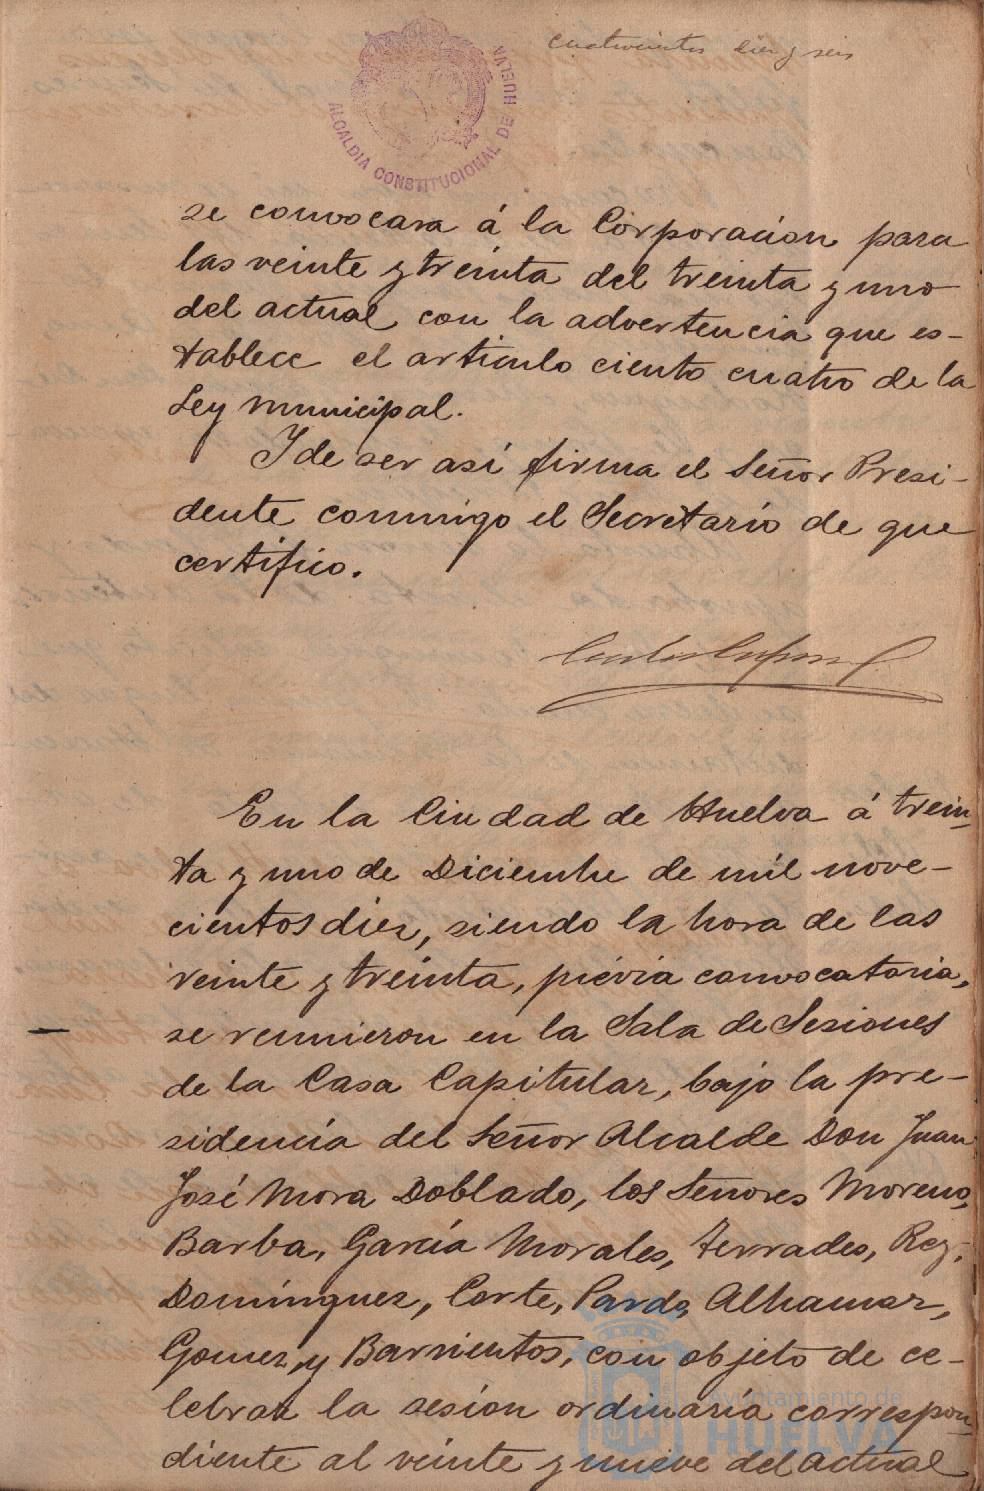 cuatrocientos diez y seis
ALCALDIA CONSTITUCIONAL DE HUELVA
se convocara á la Corporacion para
las veinte y treinta del treinta y uno
del actual con la advertencia que es-
tablece el articulo ciento cuatro de la
Ley Municipal.
Y de ser así firma el Señor Presi-
dente conmigo el Secretario de que
certifico.
En la Ciudad de Huelva á trein-
ta y uno de Diciembre de mil nove-
cientos diez, siendo la hora de las
veinte y treinta, prévia convocatoria,
se reunieron en la Sala de Sesiones
de la Casa Capitular, bajo la pre-
sidencia del Señor Alcalde Don Juan
José Mora Doblado, los Señores Moreno,
Barba, García Morales, Terrades, Rey,
Domínguez, Corte, Pardo, Alhamar,
Gomez, y Barrientos, con objeto de ce-
lebrar la sesión ordinaria correspon-
diente al veinte y nueve del actual
Ayuntamiento de
HUELVA